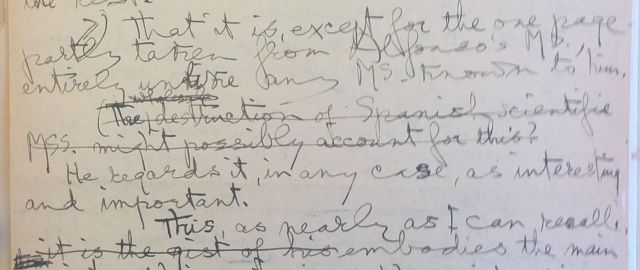 2) That it is, except for the one page
partly taken from Alfonso's MS.,
entirely unlike any MS. known to him.
(The wholesale destruction of Spanish scientific
MSS. might possibly account for this?
He regards it, in any case, as interesting
and important.
This, as nearly as I can recall,
it is the gist of his embodies the main